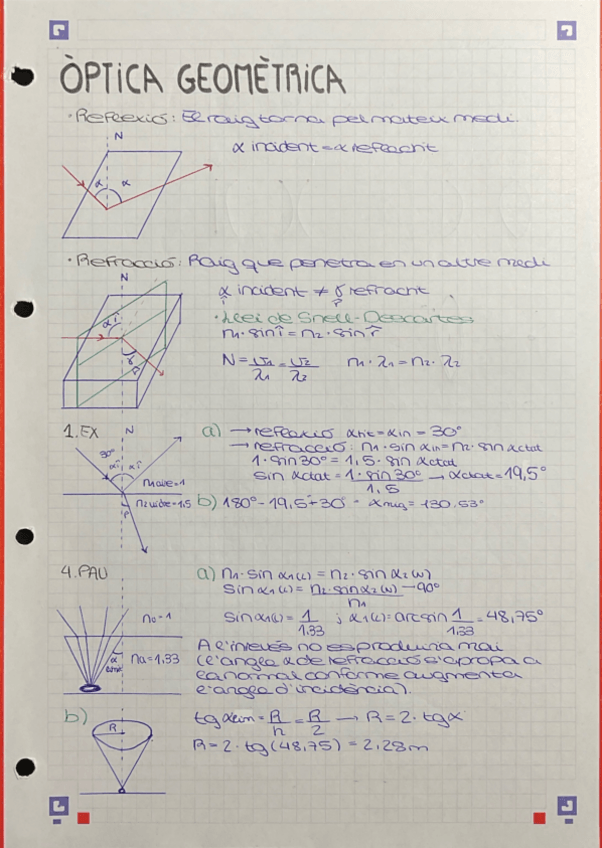 ÒPTICA GEOMÈTRICA
· Reflexió: El raig torna pel mateix medi.
N
α incident = α refractit
α α
· Refracció: Raig que penetra en un altre medi
N
α incident ≠ γ refractit
î r̂
· Llei de Snell-Descartes
n1 · sin î = n2 · sin r̂
N = v1/λ1 = v2/λ2 n1 · λ1 = n2 · λ2
1. EX N
a) → reflexió αrit = αin = 30°
→ refracció: n1 · sin αin = n2 · sin αctat
1 · sin 30° = 1,5 · sin αctat
sin αctat = 1 · sin 30°/1,5 → αctat = 19,5°
30°
n1aire = 1
n2vidre = 1,5
b) 180° - 19,5 + 30
= 130.53°
4. PAU
a) n1 · sin α1(L) = n2 · sin α2(W)
sin α1(L) = n2 · sin α2(W)/n1 → 90°
sin α1(L) = 1/1,33 ; α1(L) = arcsin 1/1,33 = 48,75°
n0 = 1
na = 1,33
A l'inrevés no es produiria mai
(l'angle α de refracció s'apropa a
la normal conforme augmenta
l'angle d'incidència).
b) R
tg αcom = R/h = R/2 → R = 2 · tg α
R = 2 · tg (48,75) = 2,28m